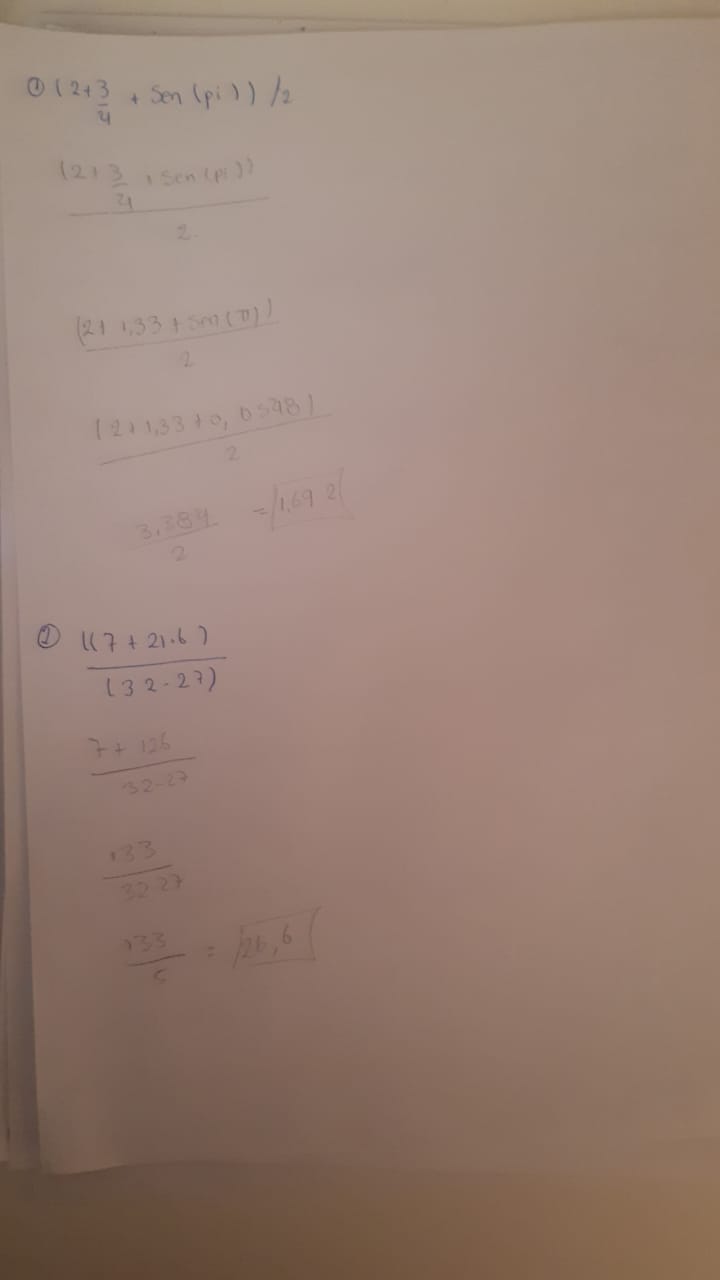 ① (2+3/4 + Sen (pi)) /2
(2+3/4 + sen (pi))
2
(2+ 1,33 + sen (π))
2
(2+1,33+0,0548)
2
3,384 = 1,692
2
② ((7 + 21.6)
(32-27)
7+ 126
32-27
133
32-27
133 = 26,6
5